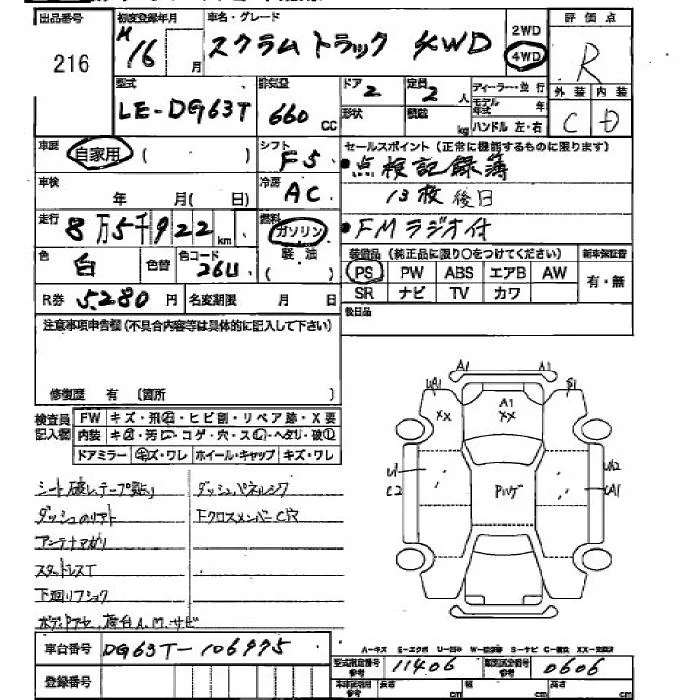 出品番号 初度登録年月 車名・グレード 2WD 評価点
216 H16 月 スクラムトラック 4WD 4WD R
型式 排気量 ドア 定員 ディーラー・並行 外装 内装
LE-DG63T 660 CC 2 2 人 モデル年式 年 C D
形状 積載 kg ハンドル 左・右
車歴 自家用 ( ) シフト F5 セールスポイント (正常に機能するものに限ります)
・点検記録簿
車検 年 月( 日) 冷房 AC 13枚後日
走行 8万5千922 km 燃料 ガソリン ・FMラジオ付
軽油 ( )
色 白 色替 色コード 26U 装備品 (純正品に限り○をつけてください) 新車保証書
PS PW ABS エアB AW 有・無
R券 5,280 円 名変期限 月 日 SR ナビ TV カワ
注意事項申告欄(不具合内容等は具体的に記入して下さい) 後日品
修復歴 有 〔箇所 〕
検査員記入欄 FW キズ・飛石・ヒビ割・リペア跡・X要
内装 キズ・汚レ・コゲ・穴・スレ・ヘタリ・破レ
ドアミラー キズ・ワレ ホイール・キャップ キズ・ワレ
A1 A1
UA1 S1
XX A1 XX
U1 UA2
C2 UA1
Pハゲ
シート破レ、テープ貼り ダッシュパネルシワ
FクロスメンバーC穴
アンテナマガリ
スタットレスT
下廻リフショク
車台番号 DG63T-106975
A-キズ E-エクボ U-凹ミ S-サビ C-腐食
型式指定番号 参考 11406 類別区分番号 参考 0606
登録番号 参考 長さ cm 幅 cm 高さ cm